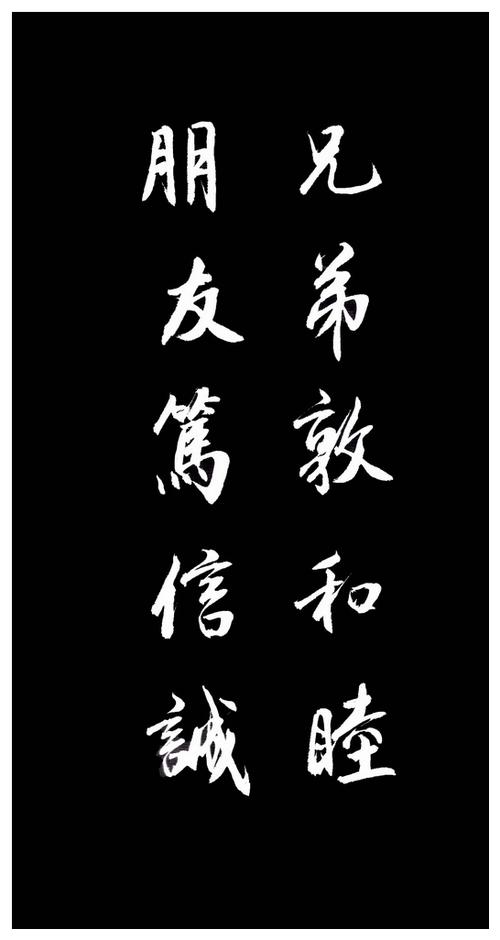 兄弟敦和睦
朋友篤信誠